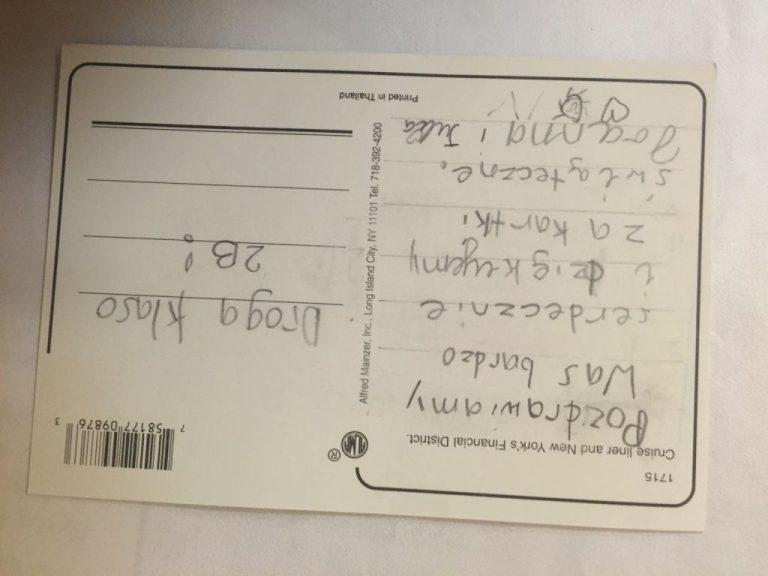 1715
Cruise liner and New York's Financial District.
Pozdrawiamy
Was bardzo
serdecznie
i dziękujemy
za kartki
świąteczne.
Joanna i Julia
Alfred Mainzer, Inc., Long Island City, NY 11101 Tel. 718-392-4200
Printed in Thailand
AMP
®
7 58177 09876 3
Droga klaso
2B!